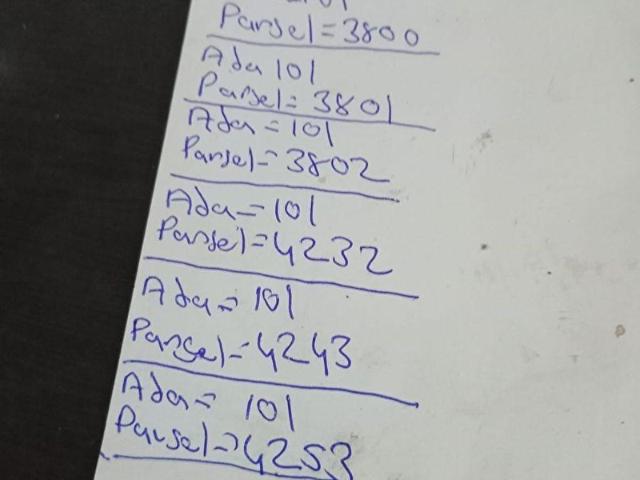 101
Parsel=3800
Ada 101
Parsel=3801
Ada=101
Parsel=3802
Ada=101
Parsel=4232
Ada=101
Parsel=4243
Ada=101
Parsel=4253